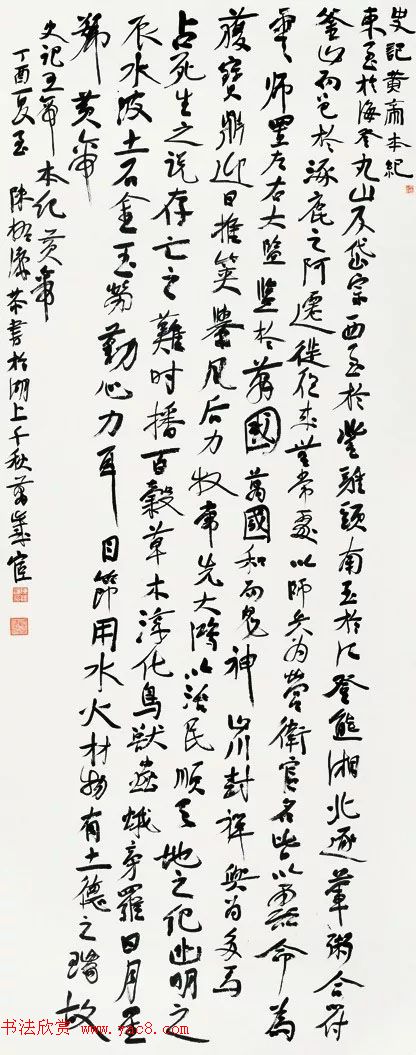 史記黄帝本紀
東至於海登丸山及岱宗西至於雞頭南至於江登熊湘北逐葷粥合符
釜山而邑於涿鹿之阿遷徙往来無常處以師兵為營衛官名皆以雲命為
雲師置左右大監監於萬國萬國和而鬼神山川封禪與为多焉
獲寶鼎迎日推筴舉風后力牧常先大鴻以治民順天地之纪幽明之
占死生之说存亡之難時播百穀草木淳化鳥獸蟲蛾旁羅日月星
辰水波土石金玉勞勤心力耳目節用水火材物有土德之瑞故
號黄帝
史记五帝本纪黄帝
丁酉夏至 陳振濂恭書於湖上千秋萬歲宦
书法欣赏 www.yac8.com